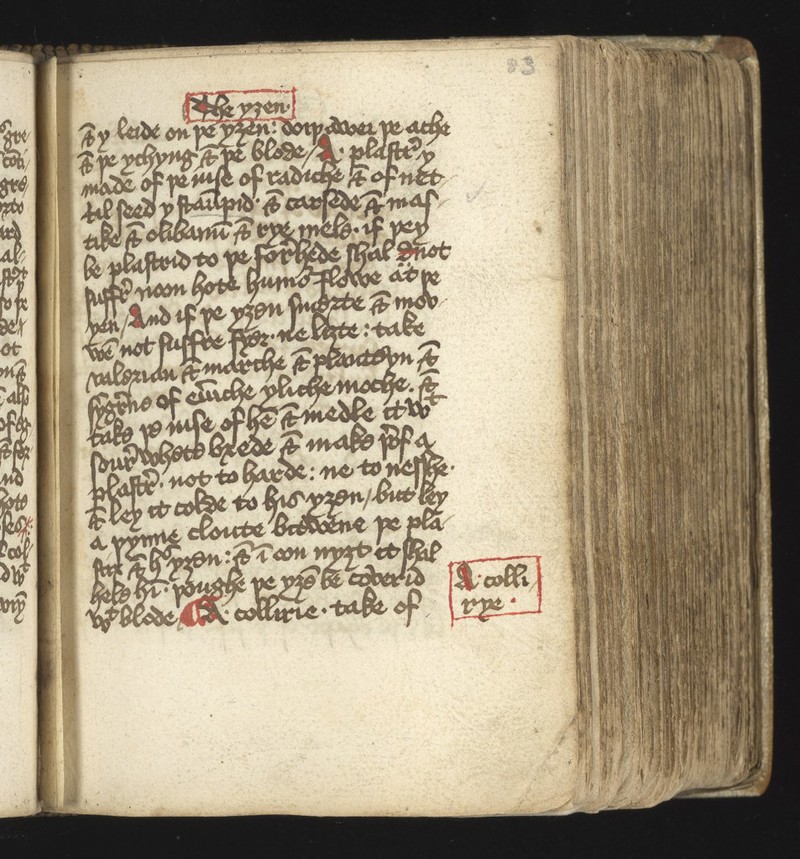 83
The yȝen·
⁊ y leide on þe yȝen: doiþ awei þe ache
⁊ þe ychyng ⁊ þe blode / A· plastr̄ y
made of þe iuse of radiche ⁊ of net-
til seed y stāpid· ⁊ carsede ⁊ mas-
tike ⁊ olibanū ⁊ rye mele· if þey
be plastrid to þe forhede shal not
suffr̄ noon hote humōs flowe at þe
yen / And if þe yȝen smerte ⁊ mow-
wē not suffre fyer· ne liȝte: take
valerian ⁊ marche ⁊ planteyn ⁊
of eūiche yliche moche· ⁊
take þe iuse of hē ⁊ medle it wᵗ
sour̄ whete brede ⁊ make þ̄of a
plastr̄· not to harde: ne to neshe·
⁊ ley it colde to his yȝen / but ley
a þynne cloute bitwene þe pla-
str ⁊ hˢ yȝen: ⁊ ī oon nyȝt it shal
hele hī· þoughe þe yȝe be cōverid
wᵗ blode / A· collirie· take of
A· colli
rye·